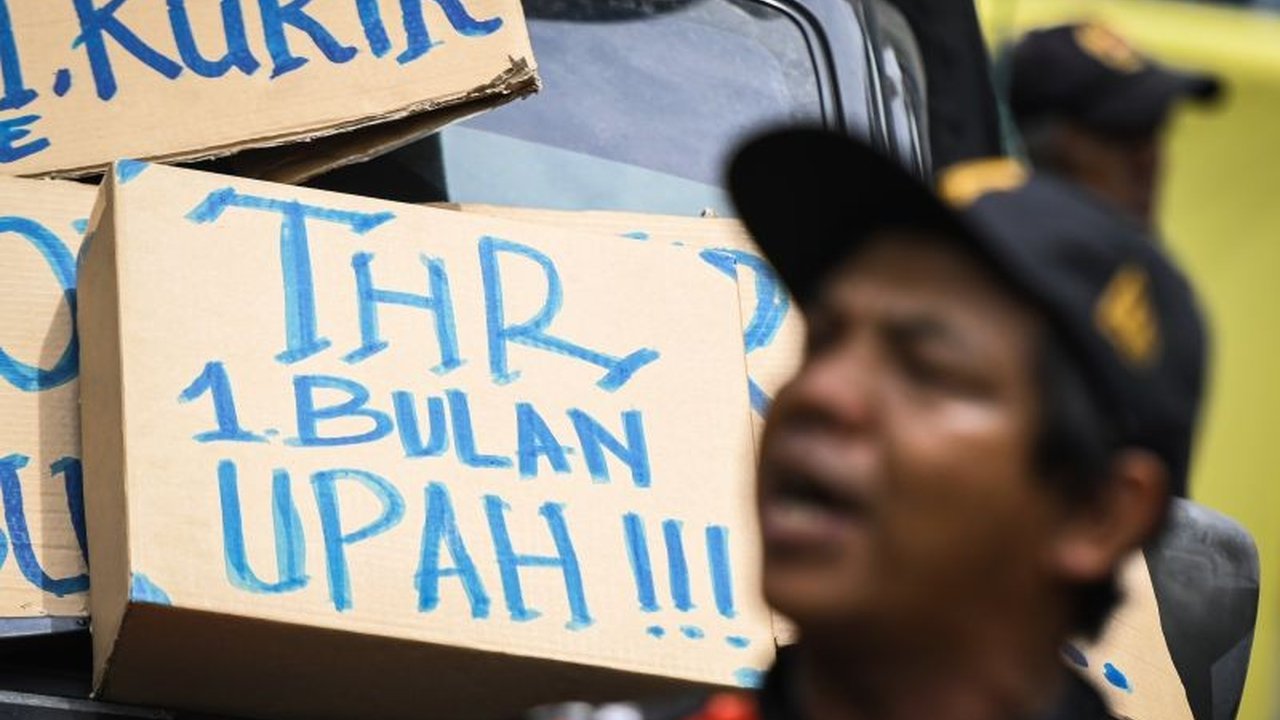 KURIR
THR
1. BULAN
UPAH !!!